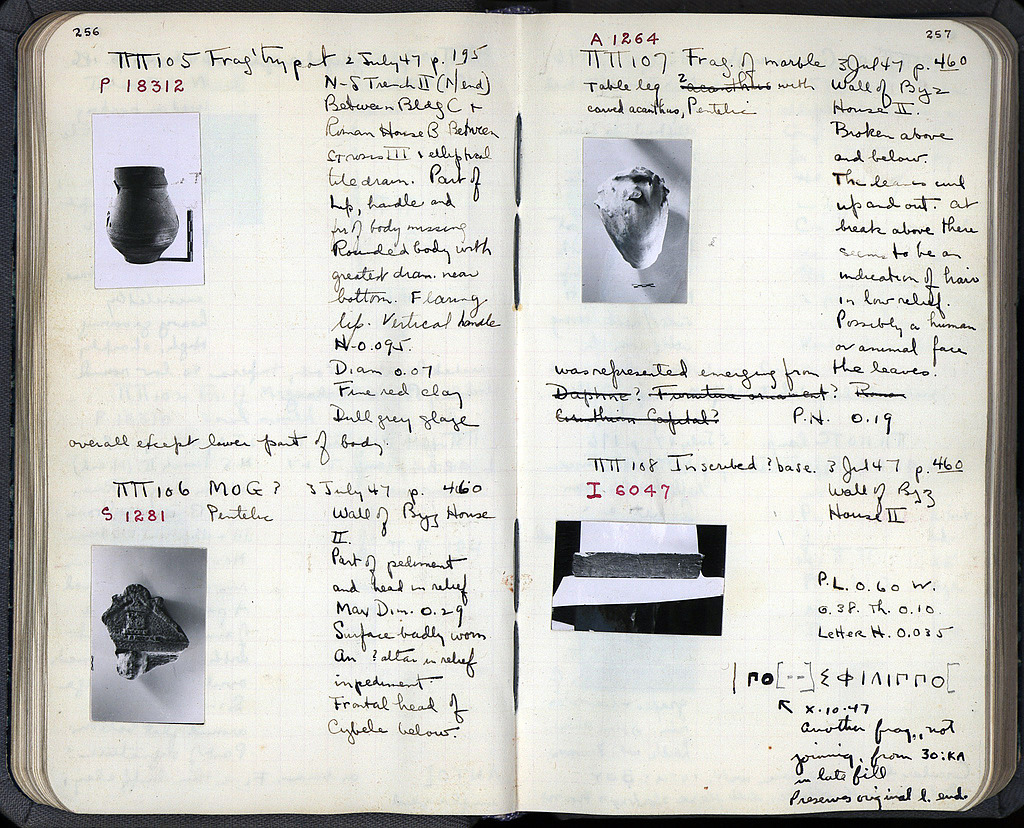 256
ΠΠ105 Frag'try pot 2 July 47 p. 195
P 18312
N-S Trench II (N end)
Between Bldg C +
Roman House B Between
III + elliptical
tile drain. Part of
lip, handle and
of body missing
Rounded body with
greatest diam. near
bottom. Flaring
lip. Vertical handle
H-0.095.
Diam 0.07
Fine red clay
Dull grey glaze
overall except lower part of body.
ΠΠ106 MOG? 3 July 47 p. 460
S 1281 Pentelic
Wall of Byz House
II.
Part of pediment
and head in relief
Max Dim. 0.29
Surface badly worn
An ? altar in relief
in pediment
Frontal head of
Cybele below.
257
A 1264
ΠΠ107 Frag. of marble 3 Jul 47 p. 460
Table leg ? acanthus with
carved acanthus, Pentelic
Wall of Byz
House II.
Broken above
and below.
The leaves curl
up and out. At
break above there
seems to be an
indication of hair
in low relief.
Possibly a human
or animal face
was represented emerging from the leaves.
Daphne? Furniture ornament? Roman
Corinthian Capital? P.H. 0.19
ΠΠ108 Inscribed ? base. 3 Jul 47 p. 460
I 6047
Wall of Byz
House II
P.L. 0.60 W.
0.38. Th. 0.10.
Letter H. 0.035
| ΓΟ[--]ΣΦΙΛΙΠΠΟ[
↖ X.10.47
Another frag., not
joining, from 30:ΚΑ
in late fill
Preserves original l. end.